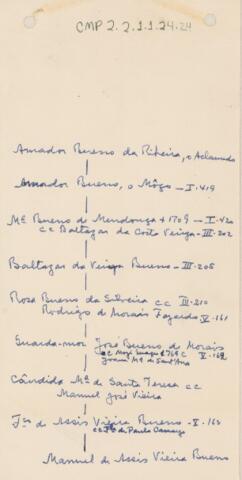 CMP 2.2.1.1.24.24
Amador Bueno da Ribeira, o Aclamado
Amador Bueno, o Môço - I.419
Mª Bueno de Mendonça + 1709 - I.420
cc Baltazar da Costa Veiga - III.202
Baltazar da Veiga Bueno - III.208
Rosa Bueno da Silveira cc III.210
Rodrigo de Morais Fazardo V.161
Guarda-mor José Bueno de Morais
cc Mogi 1769 C V.162
Mª de Sant'Ana
Cândida Mª de Santa Teresa cc
Manuel José Vieira
Fco de Assis Vieira Bueno - V.162
de Paula Camargo
Manuel de Assis Vieira Bueno